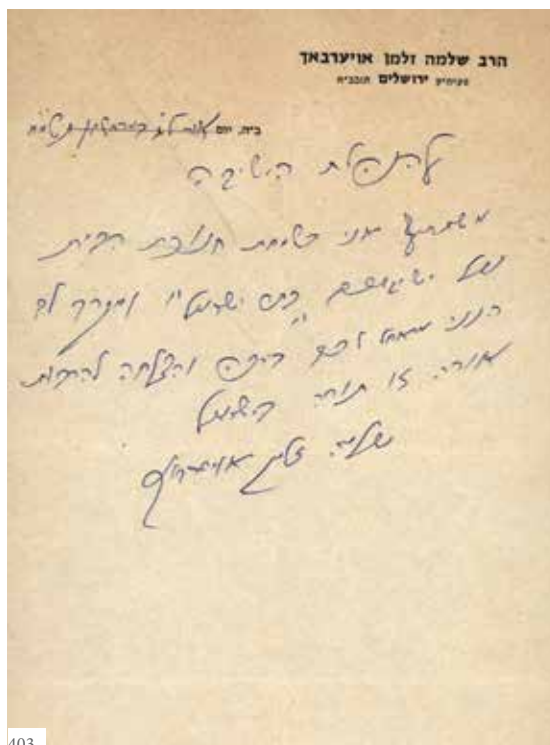 הרב שלמה זלמן אויערבאך
פעיה״ק ירושלים תובב״א
ב״ה, יום
להנהלת הישיבה
משתתף אני בשמחת חנוכת הבית
של ישיבתכם "בית ישראל"
הנני ברכה והצלחה להרבות
אורה זו תורה בישראל
שלמה זלמן אויערבאך
403